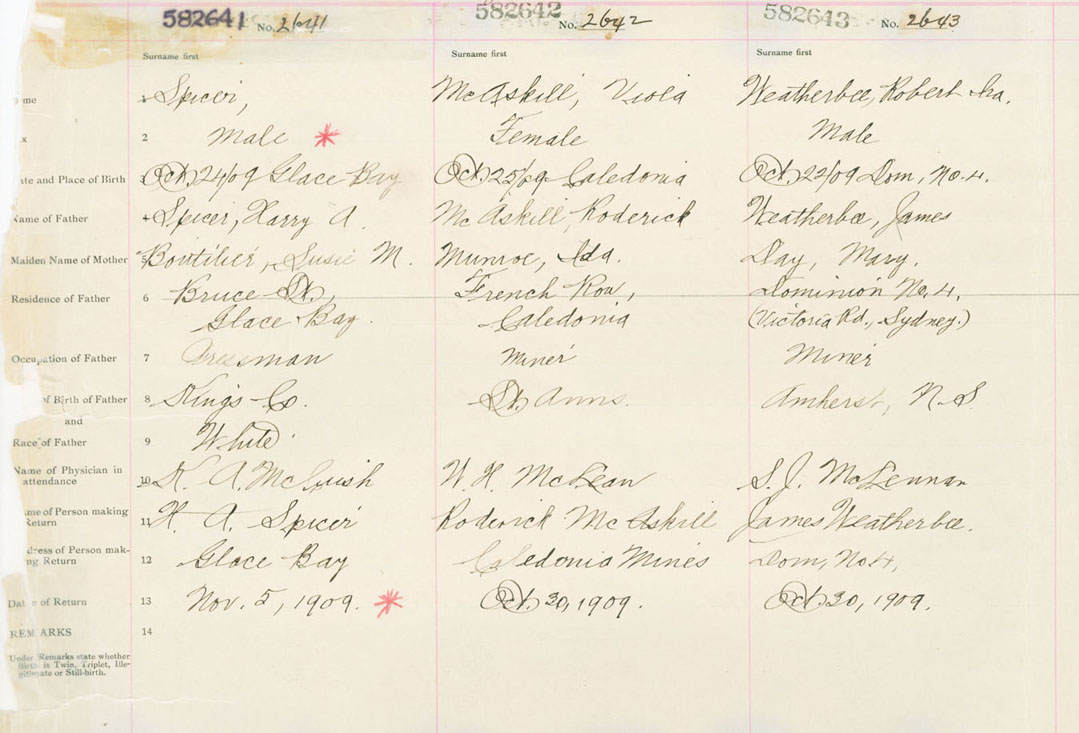 582641 No. 2641 582642 No. 2642 582643 No. 2643
Surname first Surname first Surname first
me 1 Spicer, McAskill, Viola Weatherbee, Robert Ira.
x 2 Male * Female Male
ate and Place of Birth 3 Oct. 24/09 Glace Bay Oct. 25/09 Caledonia Oct. 22/09 Dom, No. 4.
Name of Father 4 Spicer, Harry A. McAskill, Roderick Weatherbee, James
Maiden Name of Mother 5 Boutilier, Susie M. Munroe, Ida. Day, Mary.
Residence of Father 6 Bruce St., French Row, Dominion No. 4.
Glace Bay. Caledonia (Victoria Rd., Sydney.)
Occupation of Father 7 Pressman Miner Miner
of Birth of Father 8 Kings Co. St. Anns. Amherst, N.S.
and
Race of Father 9 White
Name of Physician in 10 K. A. McCuish W. H. McKean S. J. McLennan
attendance
me of Person making 11 H. A. Spicer Roderick McAskill James Weatherbee.
Return
dress of Person mak- 12 Glace Bay Caledonia Mines Dom, No 4,
ng Return
Date of Return 13 Nov. 5, 1909. * Oct. 30, 1909. Oct. 30, 1909.
REMARKS 14
Under Remarks state whether
Birth is Twin, Triplet, Ille-
gitimate or Still-birth.